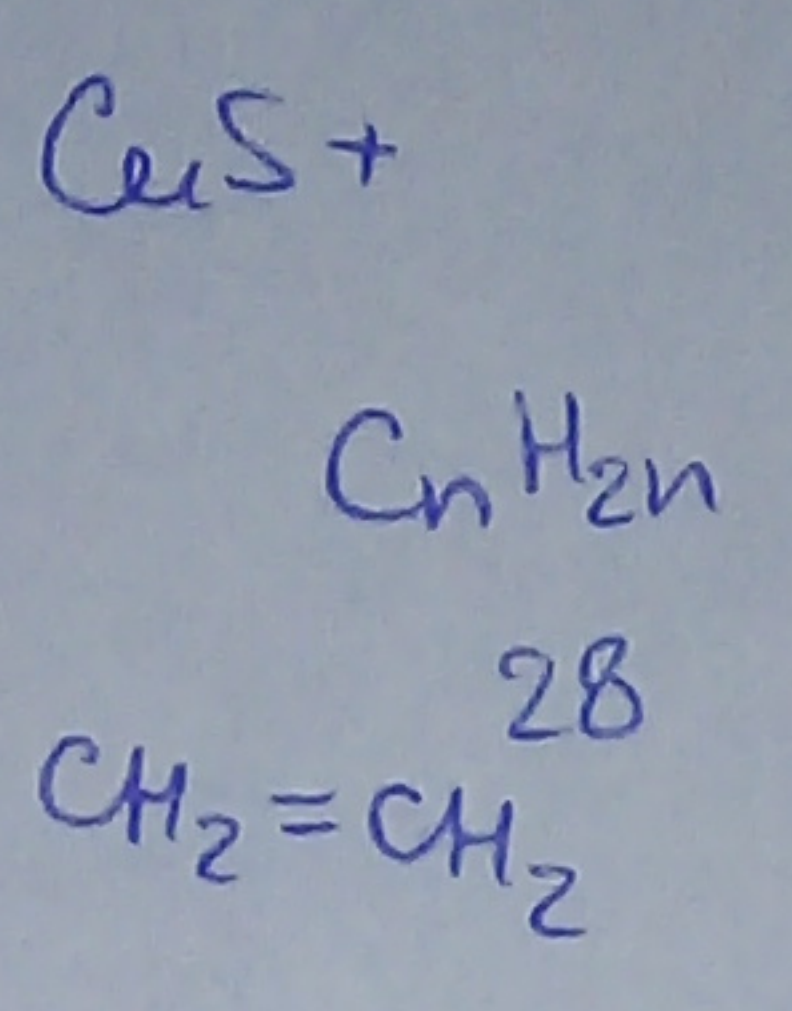 CuS +
CnH2n
28
CH2=CH2